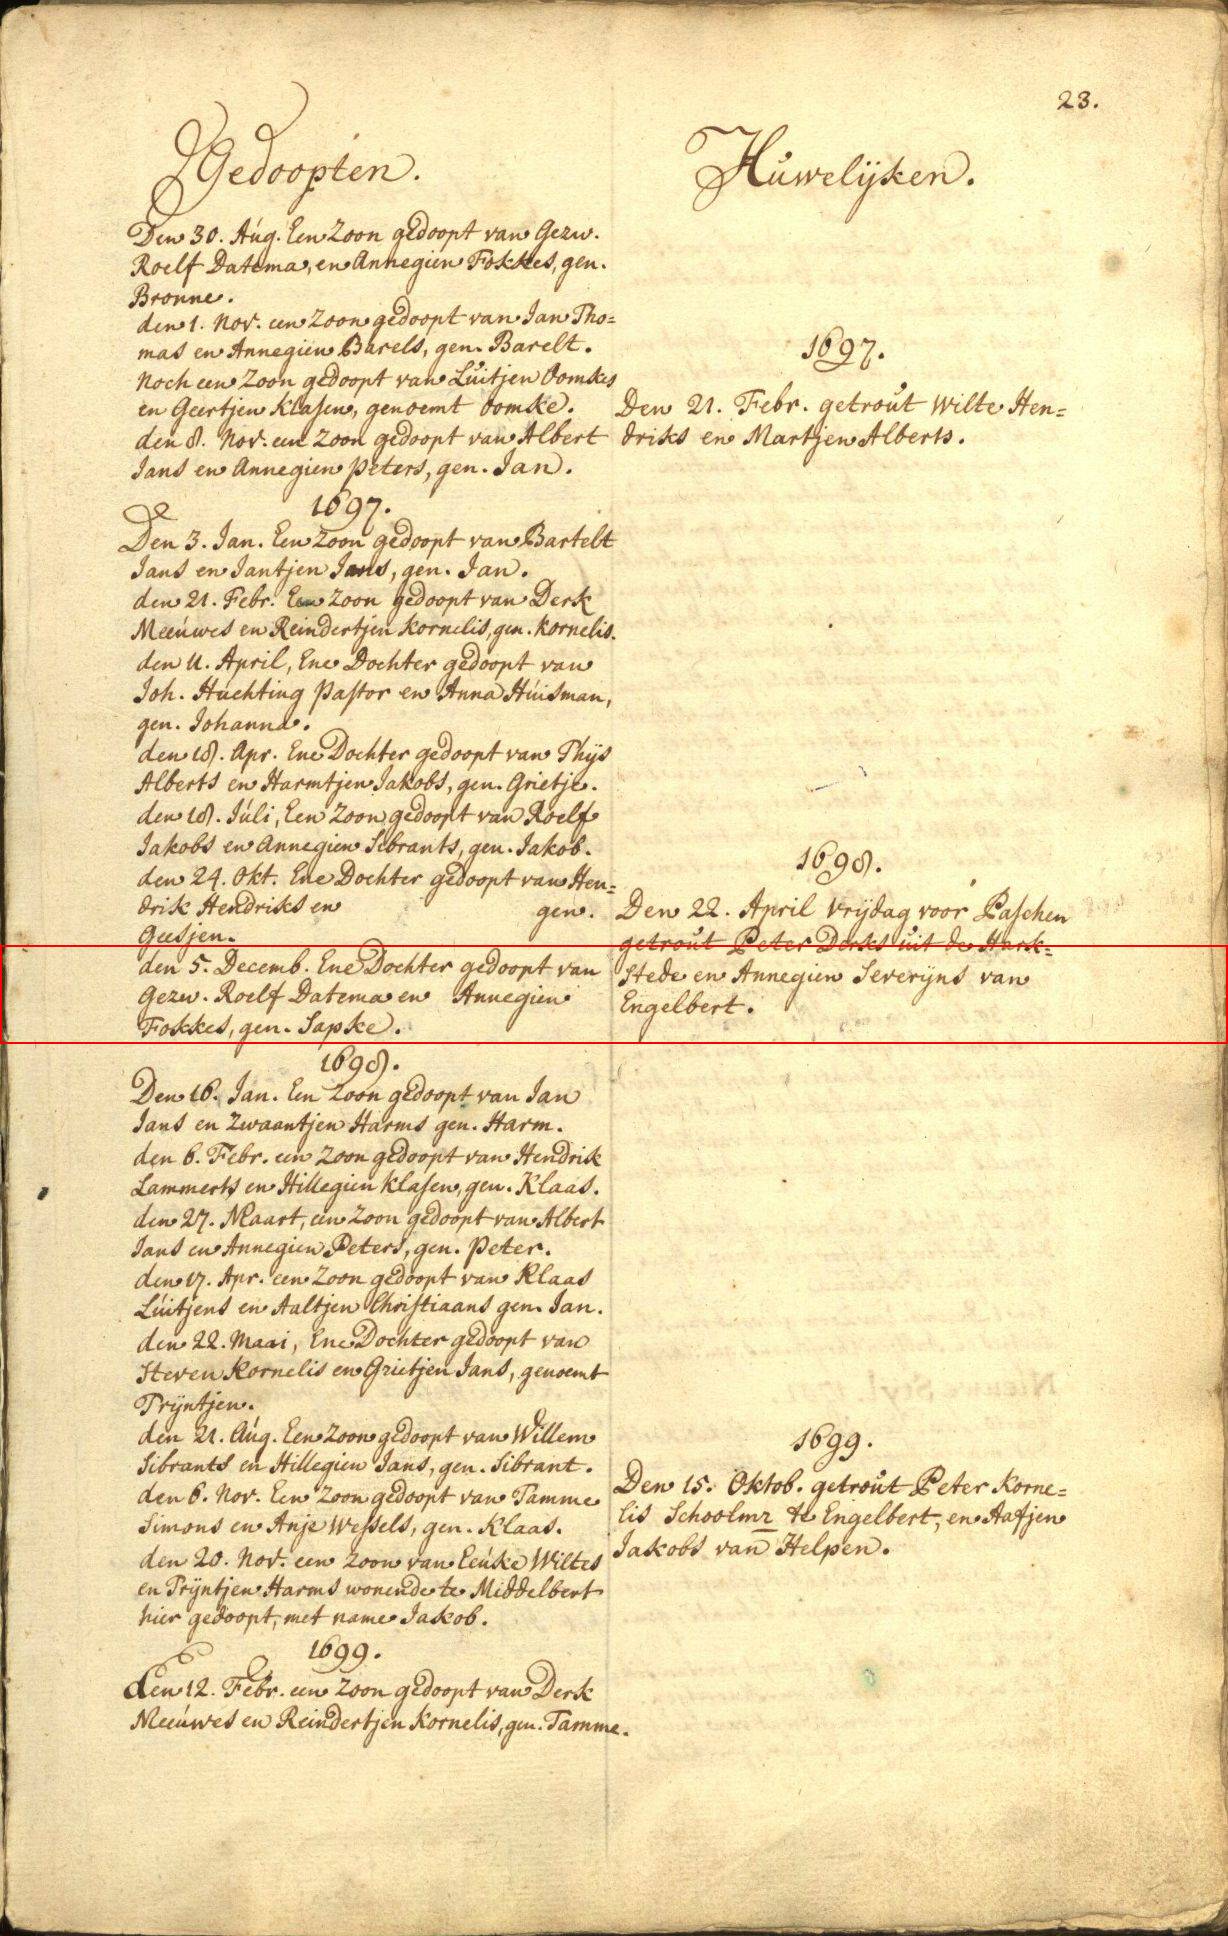 23.
Gedoopten.
Den 30. Aúg. Een Zoon gedoopt van Gezw.
Roelf Datema, en Annegien Fokkes, gen.
Bronne.
den 1. Nov. een Zoon gedoopt van Jan Tho=
mas en Annegien Barels, gen. Barelt.
Noch een Zoon gedoopt van Lúitjen Oomkes
en Geertjen Klasen, genoemt Oomke.
den 8. Nov. een Zoon gedoopt van Albert
Jans en Annegien Peters, gen. Jan.
1697.
Den 3. Jan. Een Zoon gedoopt van Bartelt
Jans en Jantjen Jans, gen. Jan.
den 21. Febr. Een Zoon gedoopt van Derk
Meeúwes en Reindertjen Kornelis, gen. Kornelis.
den 11. April, Ene Dochter gedoopt van
Joh. Húchting Pastor en Anna Húisman,
gen. Johanna.
den 18. Apr. Ene Dochter gedoopt van Thijs
Alberts en Harmtjen Jakobs, gen. Grietje.
den 18. Júli, Een Zoon gedoopt van Roelf
Jakobs en Annegien Sibrants, gen. Jakob.
den 24. Okt. Ene Dochter gedoopt van Hen=
drik Hendriks en gen.
Geesjen.
den 5. Decemb. Ene Dochter gedoopt van
Gezw. Roelf Datema en Annegien
Fokkes, gen. Sapke.
1698.
Den 16. Jan. Een Zoon gedoopt van Jan
Jans en Zwaantjen Harms gen. Harm.
den 6. Febr. een Zoon gedoopt van Hendrik
Lammerts en Hillegien Klasen, gen. Klaas.
den 27. Maart, een Zoon gedoopt van Albert
Jans en Annegien Peters, gen. Peter.
den 17. Apr. een Zoon gedoopt van Klaas
Lúitjens en Aaltjen Christiaans gen. Jan.
den 22. Maai, Ene Dochter gedoopt van
Steven Kornelis en Grietjen Jans, genoemt
Trijntjen.
den 21. Aúg. Een Zoon gedoopt van Willem
Sibrants en Hillegien Jans, gen. Sibrant.
den 6. Nov. Een Zoon gedoopt van Tamme
Simons en Anje Wessels, gen. Klaas.
den 20. Nov. een Zoon van Eeúke Wiltes
en Trijntjen Harms wonende te Middelbert
hier gedoopt, met name Jakob.
1699.
den 12. Febr. een Zoon gedoopt van Derk
Meeúwes en Reindertjen Kornelis, gen. Tamme.
Húwelijken.
1697.
Den 21. Febr. getroút Wilte Hen=
driks en Martjen Alberts.
1698.
Den 22. April Vrijdag voor Paschen
getroút Peter Derks úit de Hark=
stede en Annegien Severijns van
Engelbert.
1699.
Den 15. Oktob. getroút Peter Korne=
lis Schoolmr te Engelbert, en Aafjen
Jakobs van Helpen.